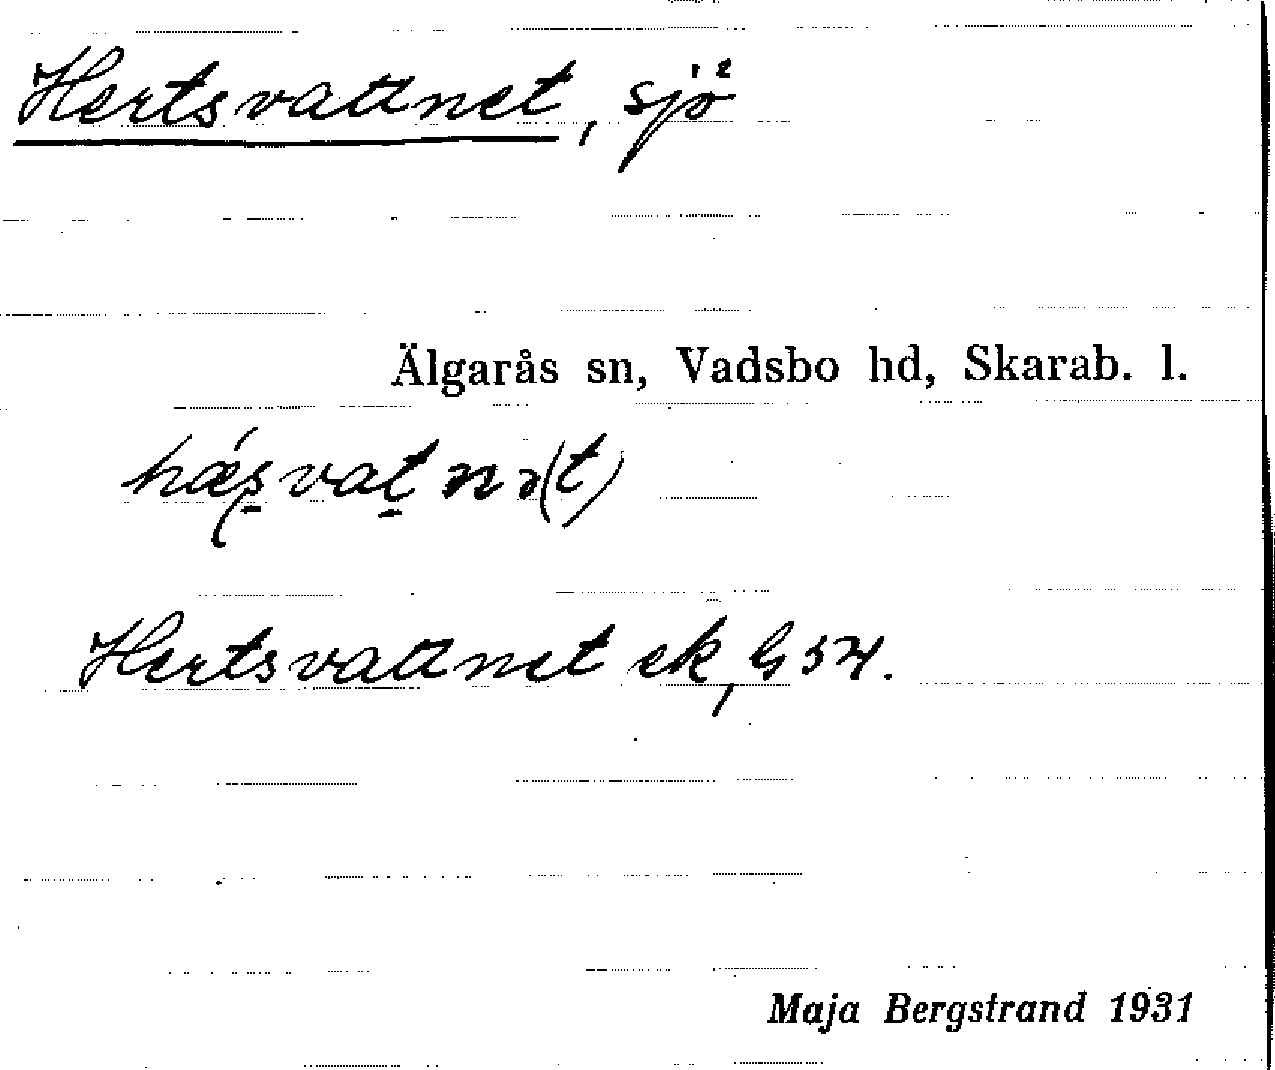 Hertsvattnet, sjö
Älgarås sn, Vadsbo hd, Skarab. l.
hæ̂ʂvat nə(t)
Hertsvattnet ek, G 54.
Maja Bergstrand 1931